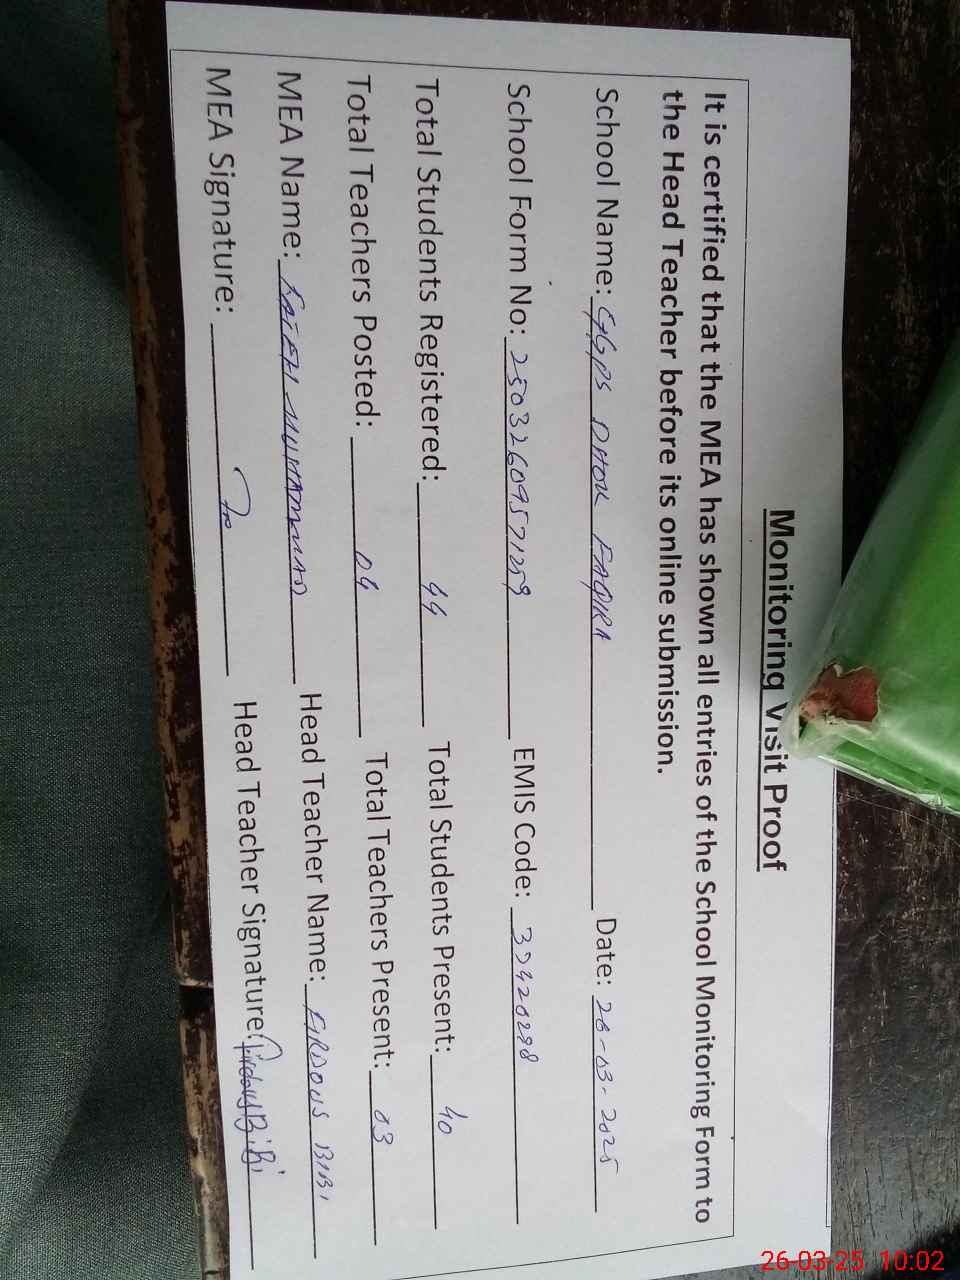 Monitoring Visit Proof
It is certified that the MEA has shown all entries of the School Monitoring Form to
the Head Teacher before its online submission.
School Name: GGPS DHOK FAQIRA Date: 26-03-2025
School Form No: 25032609571259 EMIS Code: 37420298
Total Students Registered: 44 Total Students Present: 40
Total Teachers Posted: 04 Total Teachers Present: 03
MEA Name: FATEH MUHAMMAD Head Teacher Name: FIRDOUS BIBI
MEA Signature: Head Teacher Signature: Firdous Bibi
26-03-25 10:02